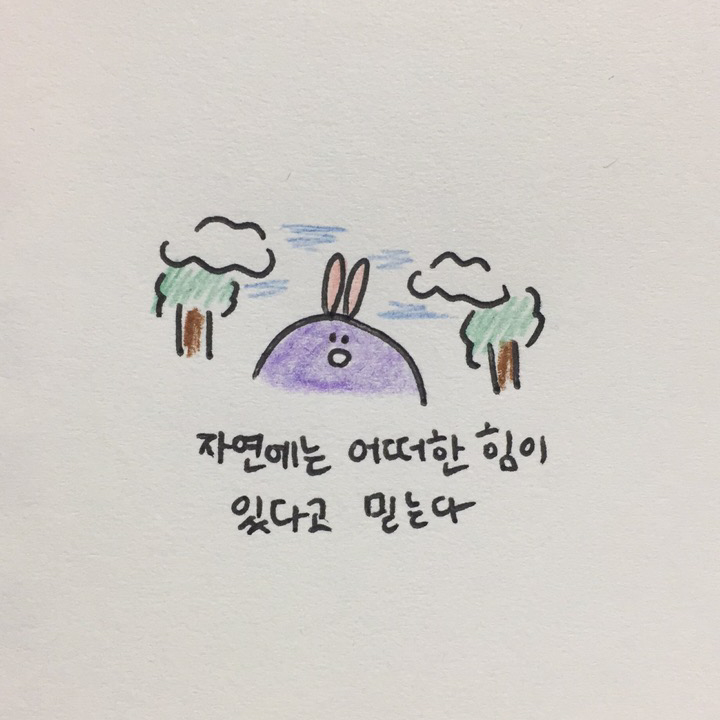 자연에는 어떠한 힘이
있다고 믿는다